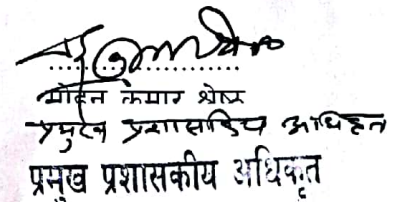 मोहन कुमार श्रेष्ठ
प्रमुख प्रशासकिय अधिकृत
प्रमुख प्रशासकीय अधिकृत